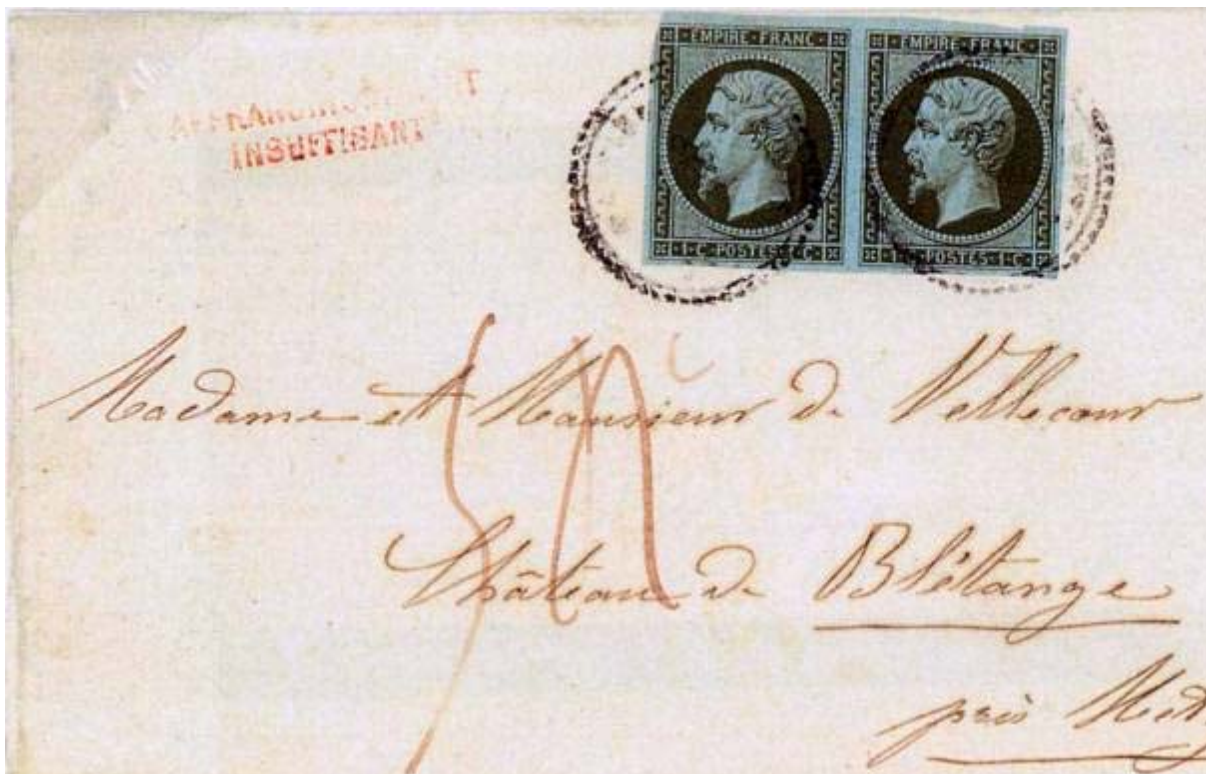 AFFRANCHISSEMENT
INSUFFISANT
EMPIRE·FRANC· EMPIRE·FRANC·
1·C·POSTES·1·C· 1·C·POSTES·1·C·
Madame et Monsieur de Vellecour
Château de Blétange
près Metz